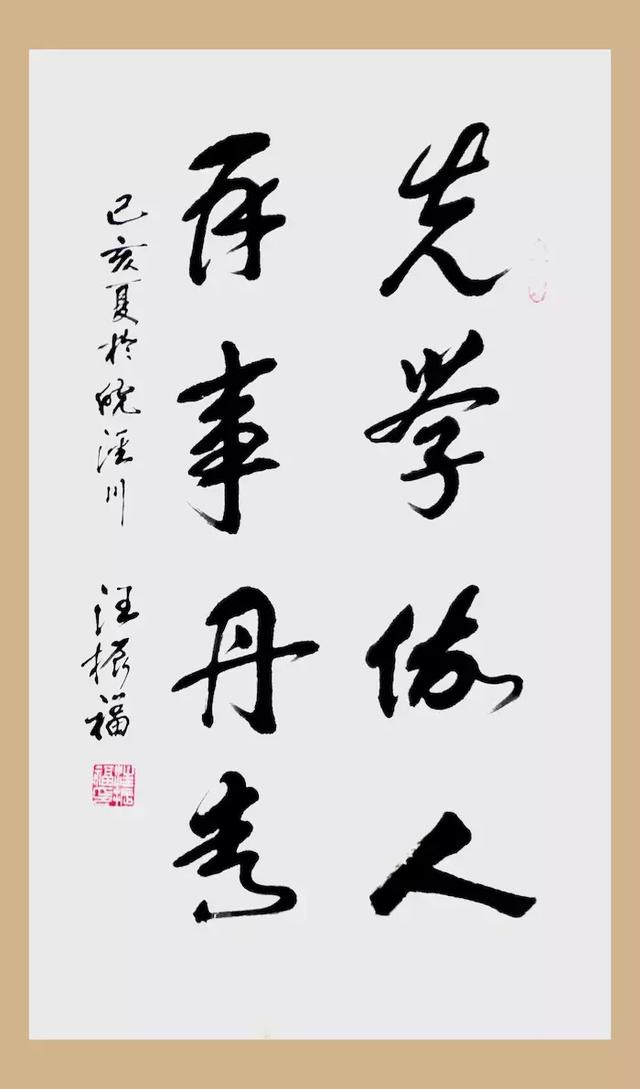 先学做人
再事丹青
己亥夏於皖泾川
汪振福